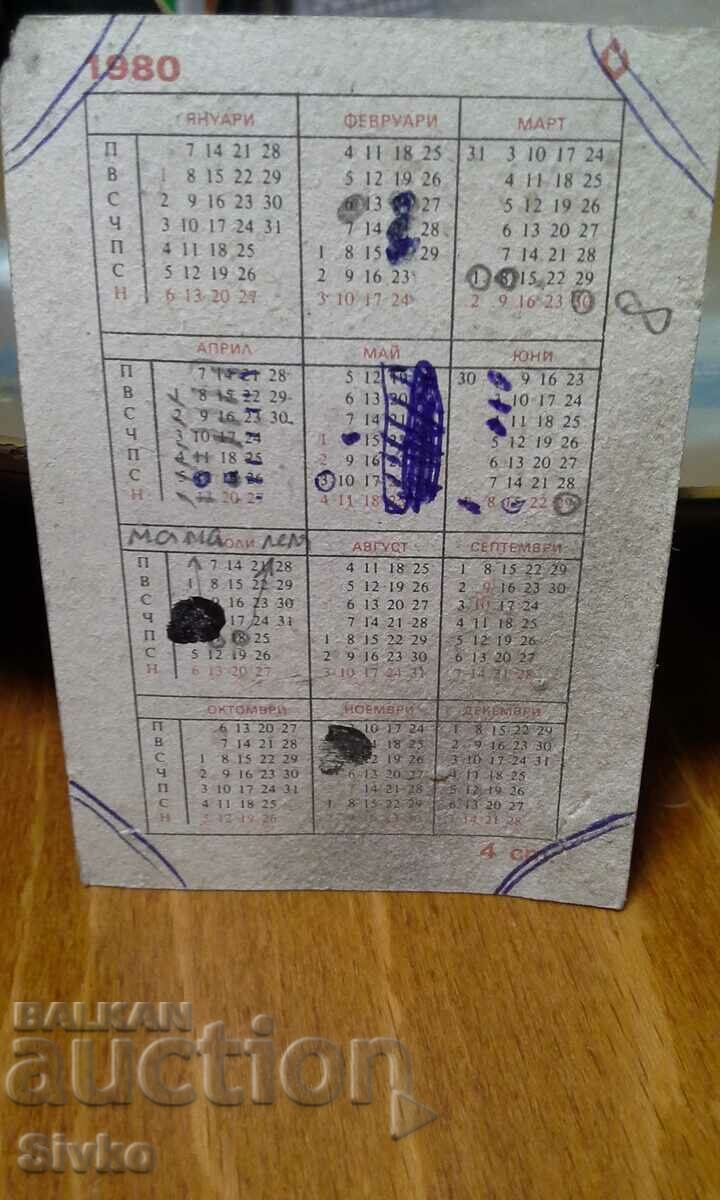 1980
ЯНУАРИ ФЕВРУАРИ МАРТ
П 7 14 21 28 4 11 18 25 31 3 10 17 24
В 1 8 15 22 29 5 12 19 26 4 11 18 25
С 2 9 16 23 30 6 13 27 5 12 19 26
Ч 3 10 17 24 31 7 14 28 6 13 20 27
П 4 11 18 25 1 8 15 29 7 14 21 28
С 5 12 19 26 2 9 16 23 1 8 15 22 29
Н 6 13 20 27 3 10 17 24 2 9 16 23 30
8
АПРИЛ МАЙ ЮНИ
П 7 14 21 28 5 12 19 30 9 16 23
В 1 8 15 22 29 6 13 20 10 17 24
С 2 9 16 23 30 7 14 21 11 18 25
Ч 3 10 17 24 1 15 5 12 19 26
П 4 11 18 25 2 9 16 6 13 20 27
С 5 26 3 10 17 7 14 21 28
Н 13 20 27 4 11 18 8 15 22 29
мама
ЮЛИ АВГУСТ СЕПТЕМВРИ
П 7 14 21 28 4 11 18 25 1 8 15 22 29
В 1 8 15 22 29 5 12 19 26 2 9 16 23 30
С 9 16 23 30 6 13 20 27 3 10 17 24
Ч 17 24 31 7 14 21 28 4 11 18 25
П 18 25 1 8 15 22 29 5 12 19 26
С 5 12 19 26 2 9 16 23 30 6 13 20 27
Н 6 13 20 27 3 10 17 24 31 7 14 21 28
ОКТОМВРИ НОЕМВРИ ДЕКЕМВРИ
П 6 13 20 27 10 17 24 1 8 15 22 29
В 7 14 21 28 18 25 2 9 16 23 30
С 1 8 15 22 29 12 19 26 3 10 17 24 31
Ч 2 9 16 23 30 6 13 20 27 4 11 18 25
П 3 10 17 24 31 7 14 21 28 5 12 19 26
С 4 11 18 25 1 8 15 22 29 6 13 20 27
Н 5 12 19 26 2 9 16 23 30 7 14 21 28
4
BALKAN
auction
Sivko